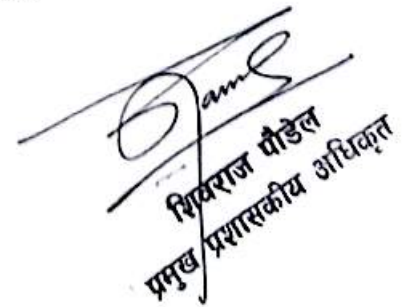 शिवराज पौडेल
प्रमुख प्रशासकीय अधिकृत